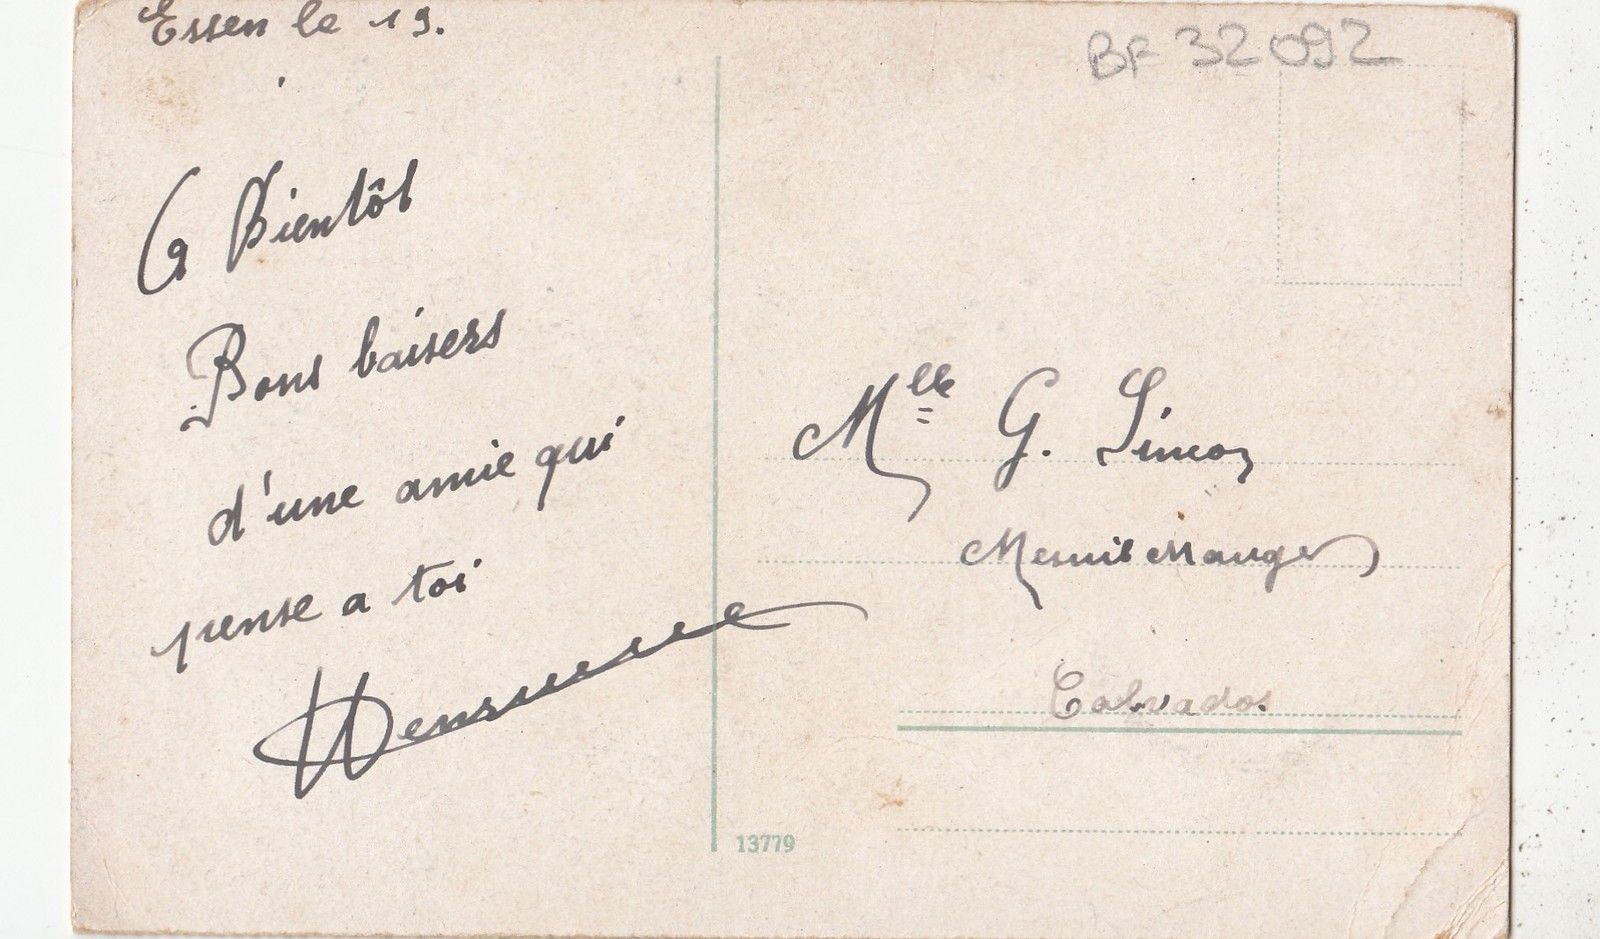 Essen le 19.
BF 32092
A Bientôt
Bons baisers
d'une amie qui
pense a toi
Mlle G. Simon
Mesnil Mauger
Calvados
13779